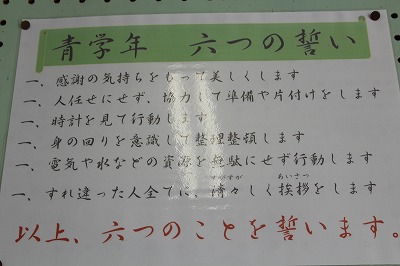 青学年 六つの誓い
一、感謝の気持ちをもって美しくします
一、人任せにせず、協力して準備や片付けをします
一、時計を見て行動します
一、身の回りを意識して整理整頓します
一、電気や水などの資源を無駄にせず行動します
一、すれ違った人全てに、清々しく挨拶をします
以上、六つのことを誓います。